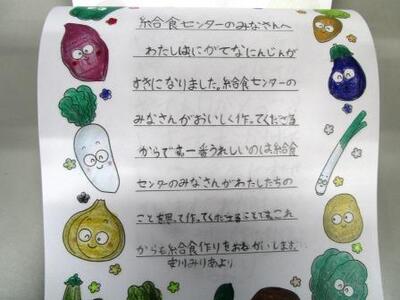 給食センターのみなさんへ
わたしはにがてなにんじんが
すきになりました。給食センターの
みなさんがおいしく作ってくださる
からです。一番うれしいのは給食
センターのみなさんがわたしたちの
ことを思って作ってくださることです。これ
からも給食作りをおねがいします。
みりあより